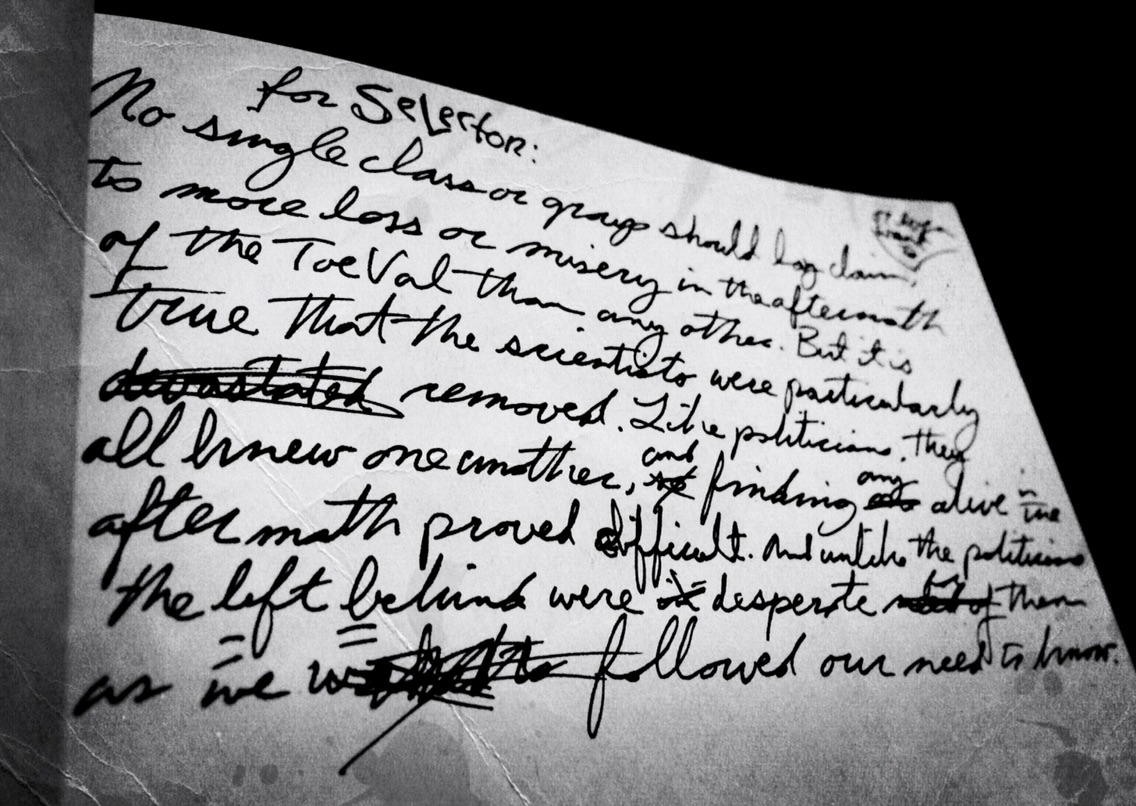 for Selector:
No single class or group should lay claim,
to more loss or misery in the aftermath
of the ToeVal than any other. But it is
true that the scientists were particularly
devastated removed. Like politicians, they
all knew one another, and finding any alive in the
aftermath proved difficult. And unlike the politicians
the left behind were desperate for them
as we followed our need to know.